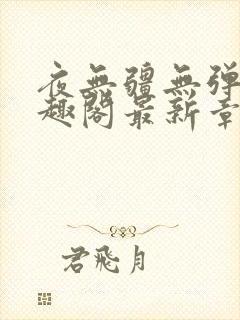 夜无疆无弹
趣阁最新章
君飛月